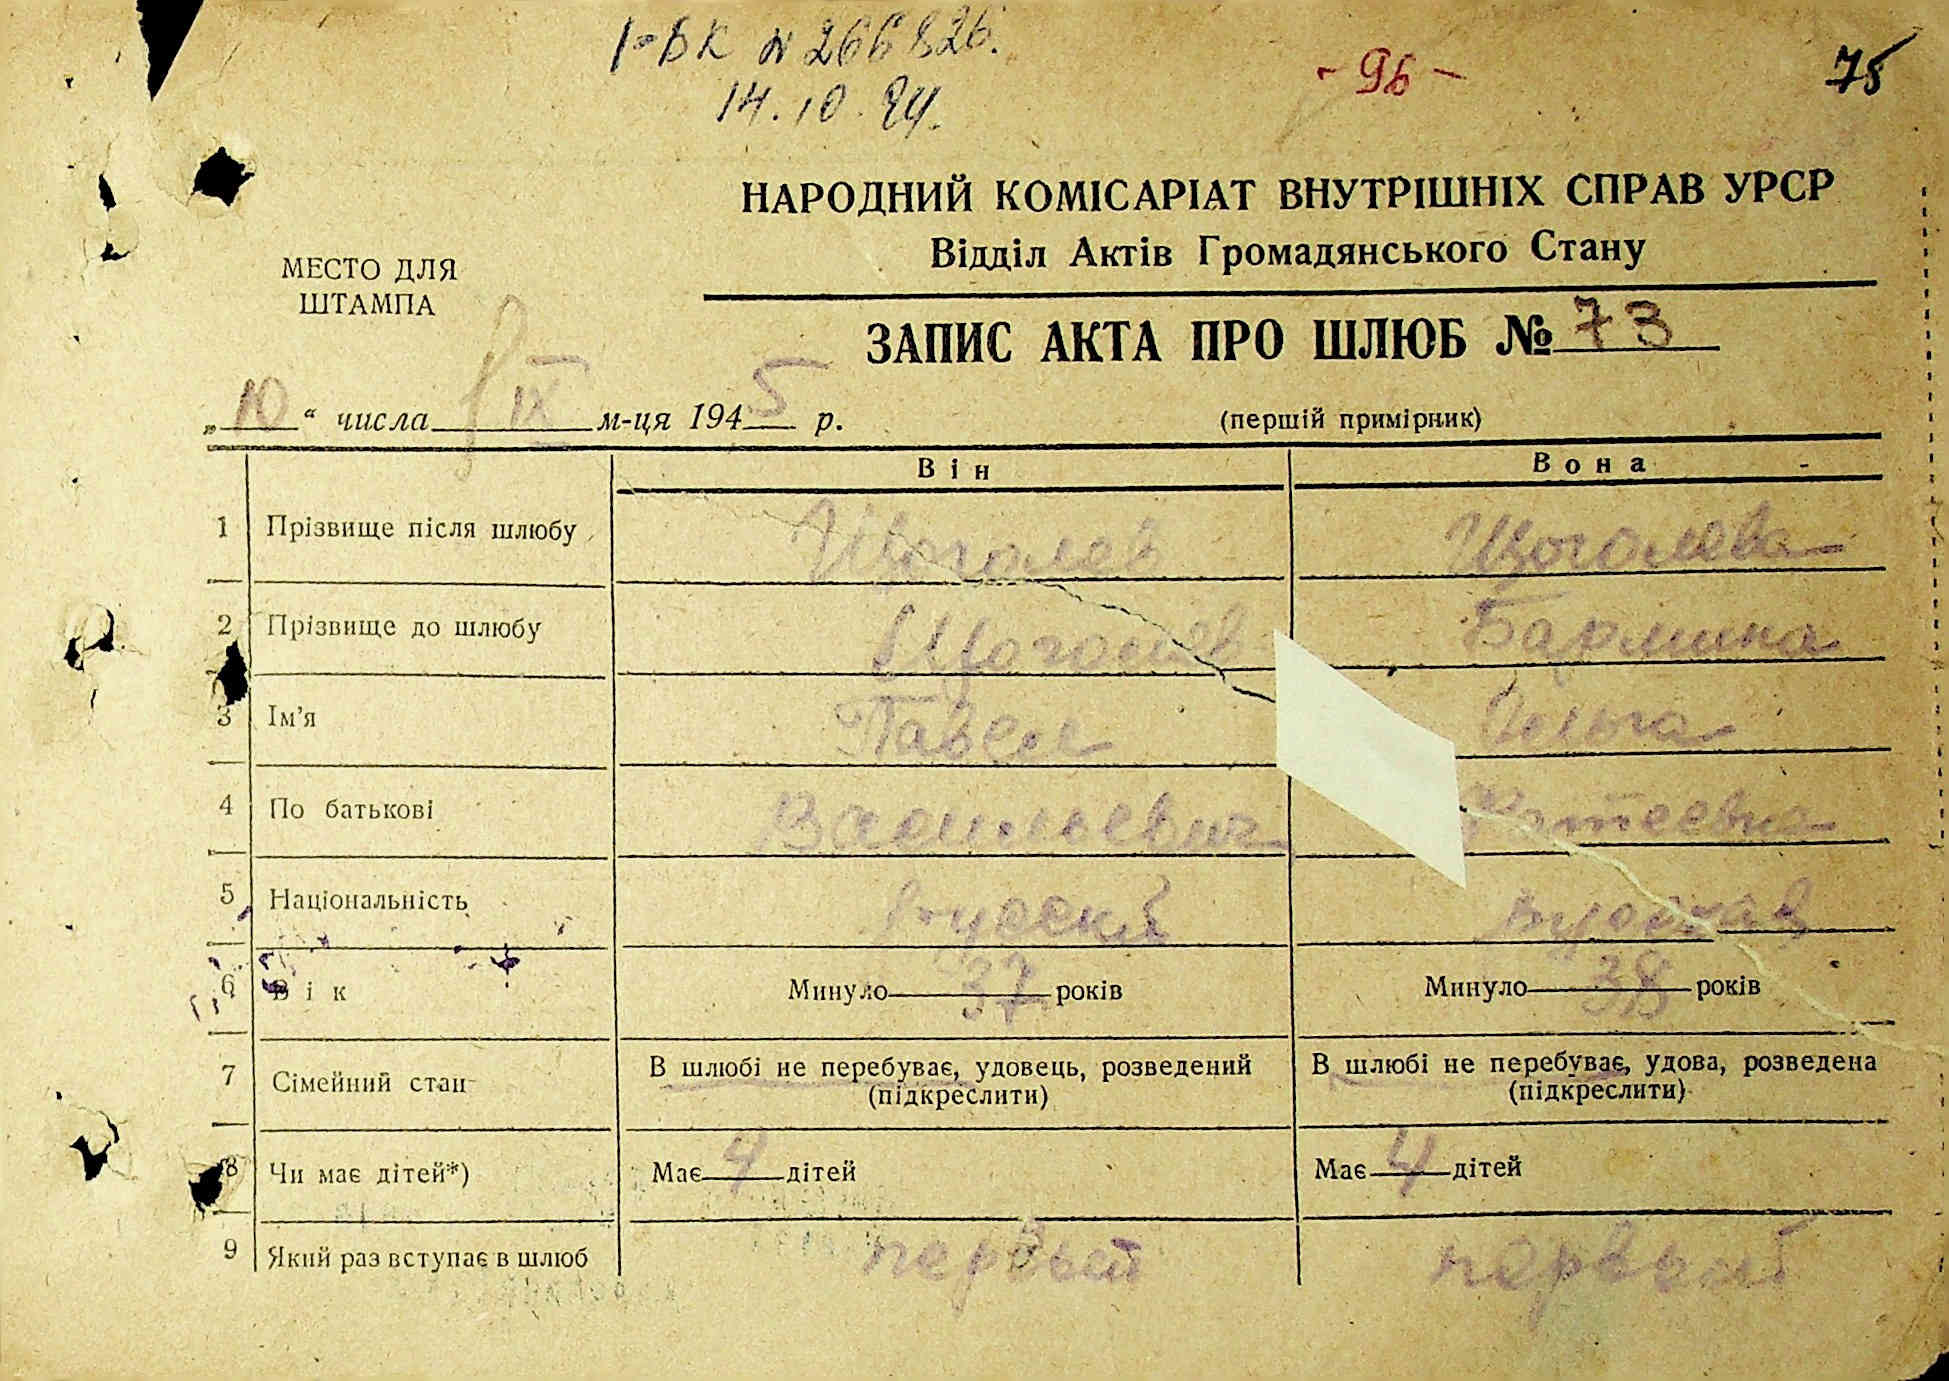 І-БК № 266826.
- 96 -
75
14.10.94.
НАРОДНИЙ КОМІСАРІАТ ВНУТРІШНІХ СПРАВ УРСР
Відділ Актів Громадянського Стану
МЕСТО ДЛЯ
ШТАМПА
ЗАПИС АКТА ПРО ШЛЮБ № 73
„ 10 “ числа IX м-ця 1945 р.
(першій примірник)
Він Вона
1 Прізвище після шлюбу Щоголев Щоголева
2 Прізвище до шлюбу Щоголев Бармина
3 Ім'я Павел
4 По батькові Васильевич
5 Національність русский русская
6 Вік Минуло 37 років Минуло 38 років
7 Сімейний стан В шлюбі не перебуває, удовець, розведений В шлюбі не перебуває, удова, розведена
(підкреслити) (підкреслити)
8 Чи має дітей*) Має 4 дітей Має 4 дітей
9 Який раз вступає в шлюб первый первый